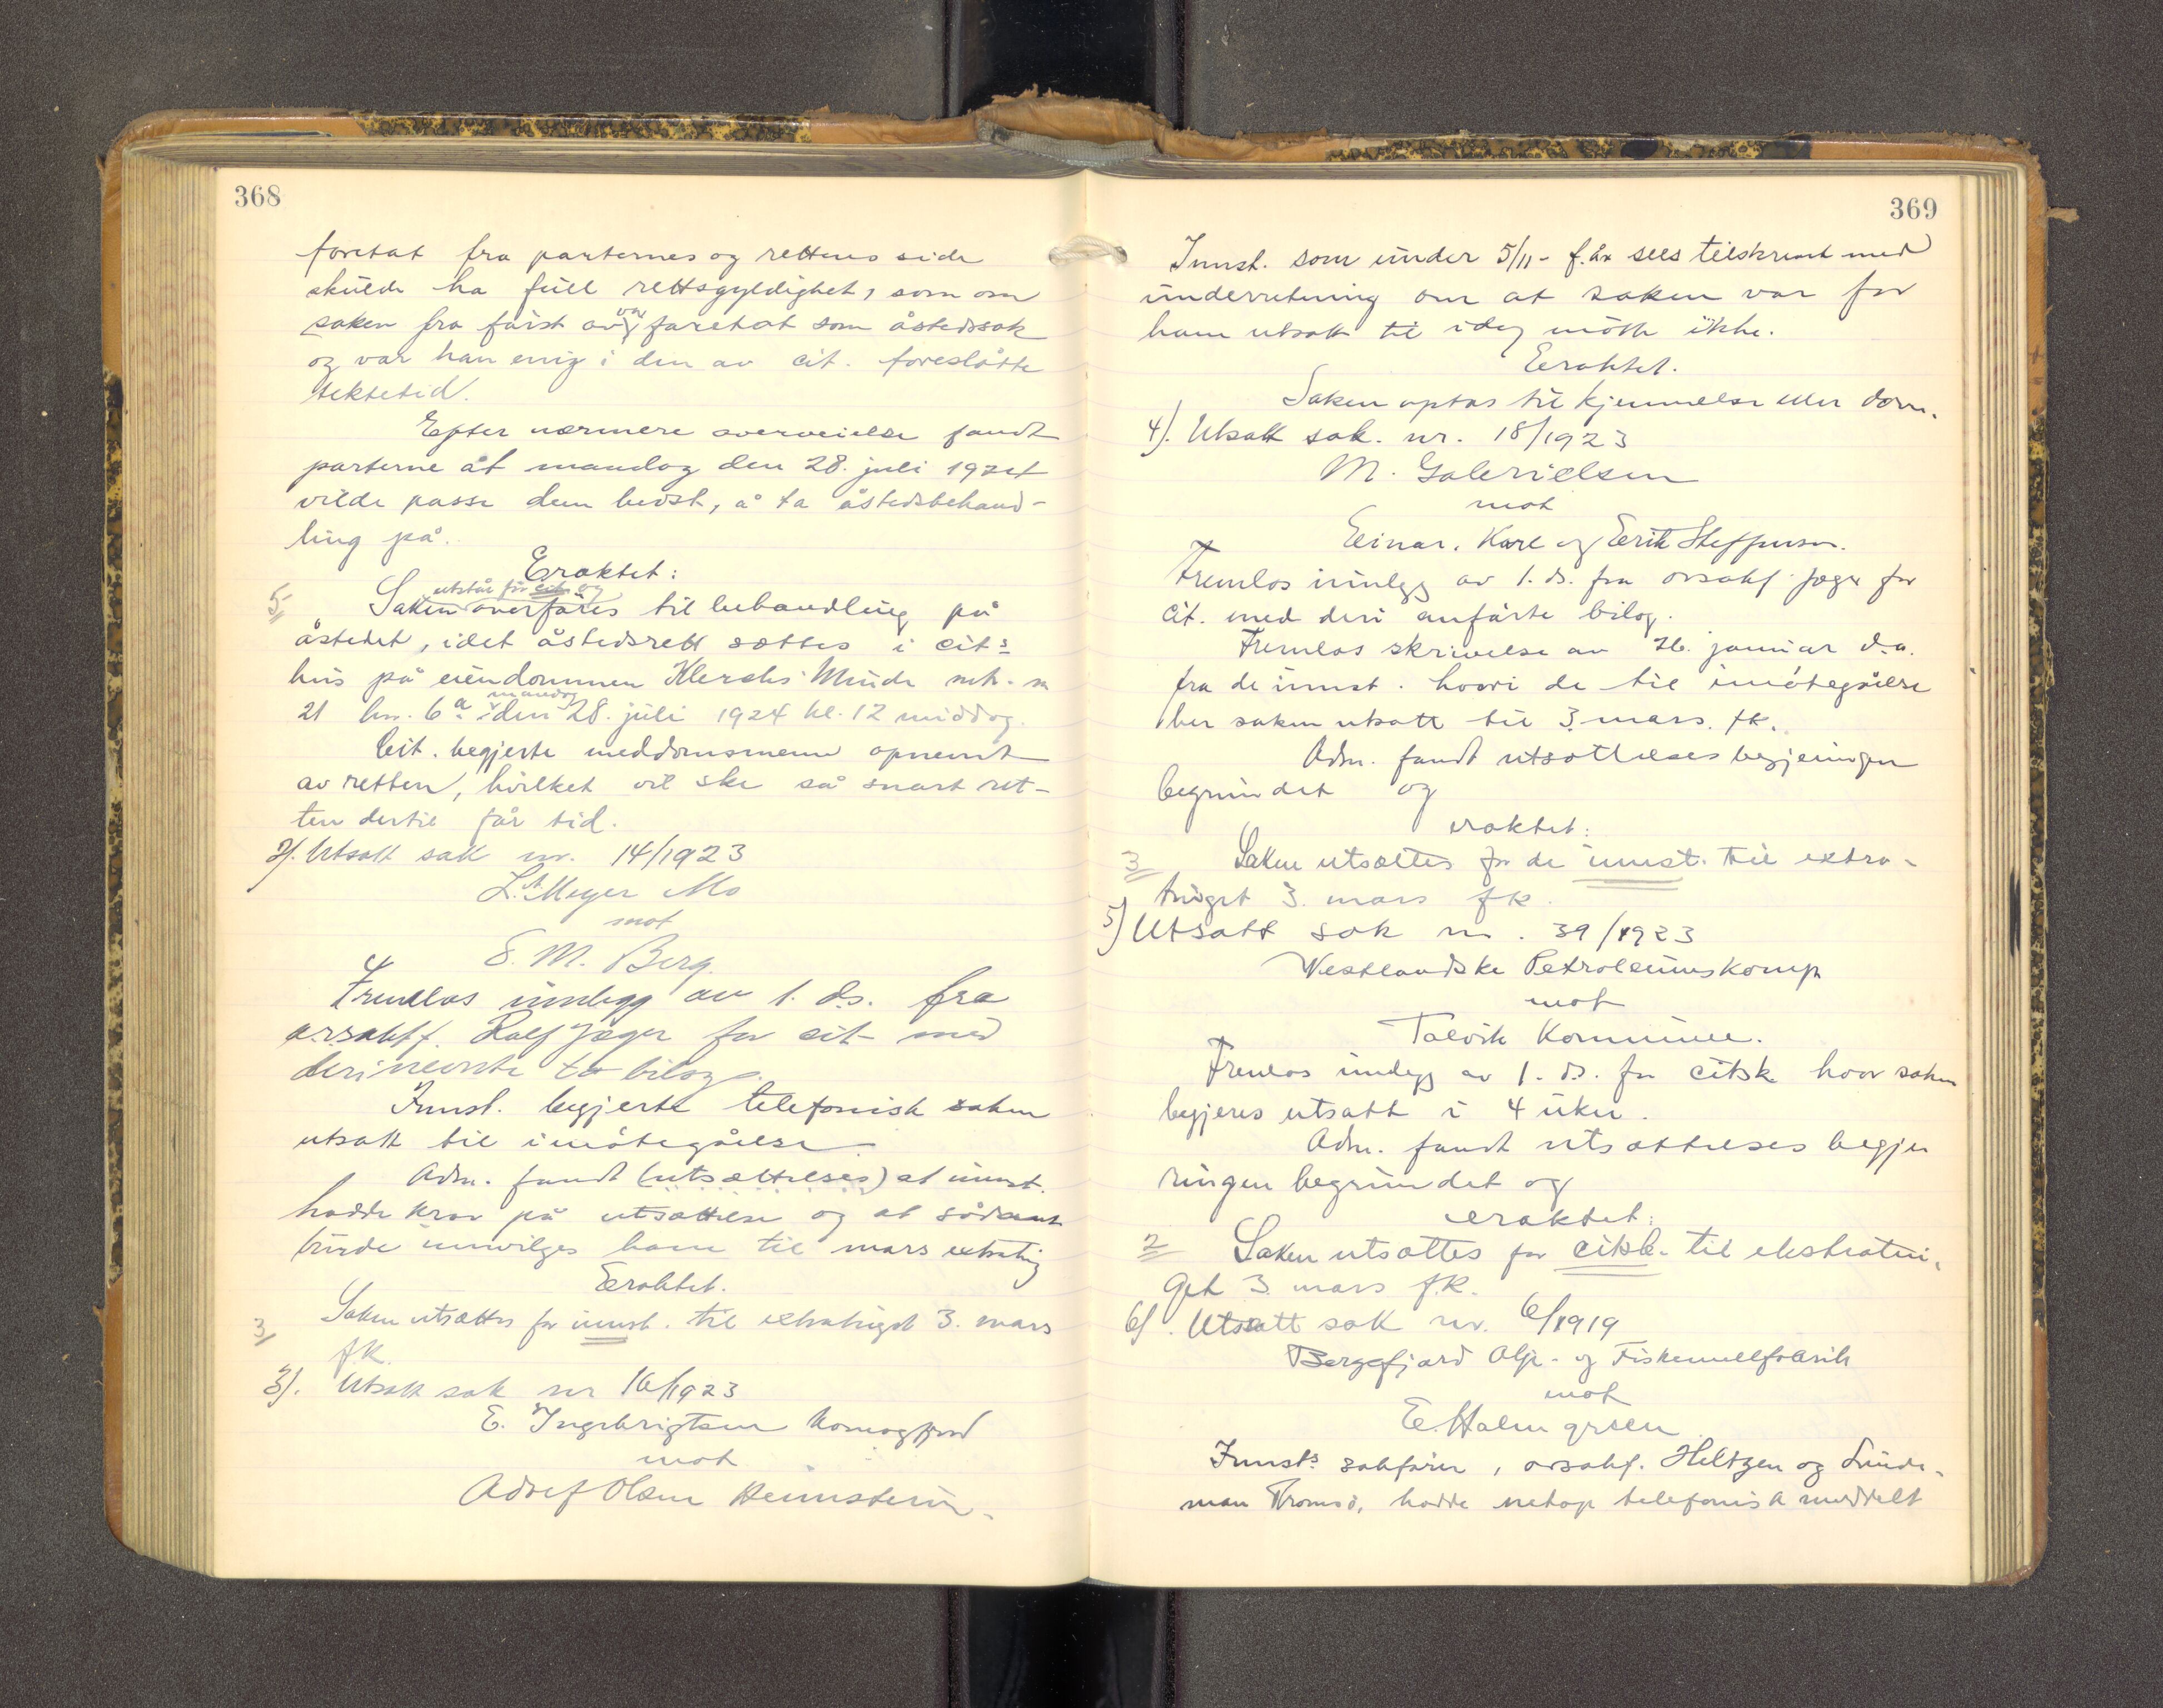 368
foretat fra parternes og rettens side
skulde ha full rettsgyldighet, som om
saken fra først av var foretat som åstedssak
og var han enig i den av cit. foreslåtte
tektetid.
Efter nærmere overveielse fandt
parterne at mandag den 28. juli 1924
vilde passe dem bedst, å ta åstedsbehand-
ling på.
Eraktet:
utstår for cit. og
5 Saken overføres til behandling på
åstedet, idet åstedsrett settes i cits
hus på eiendommen
mandag
21 bn. 6a den 28. juli 1924 kl. 12 middag.
Cit. begjerte meddomsmenn opnevnt
av retten, hvilket vil ske så snart ret-
ten dertil får tid.
2). Utsatt sak nr. 14/1923
L. Meyer Mo
mot
E. M. Berg.
Fremlas innlegg av 1. ds. fra
o.r.sakf. Rolf Jæger for cit med
deri nevnte to bilag.
Innst. begjerte telefonisk saken
utsatt til imøtegåelse.
Adm. fandt (utsættelses) at innst.
hadde krav på utsættelse og at sådant
burde innvilges ham til mars extrating
Eraktet.
3 Saken utsættes for innst. til extratinget 3. mars
f.k.
3). Utsatt sak nr 16/1923
E. Ingebrigtsen Komagfjord
mot
Adolf Olsen
369
Innst. som under 5/11 - f.år sees tilskrevet med
underretning om at saken var for
ham utsatt til idag møtte ikke.
Eraktet.
Saken optas til kjennelse eller dom.
4). Utsatt sak. nr. 18/1923
M. Gabrielsen
mot
Einar, Karl og Erik Steffensen.
Fremlas innlegg av 1. ds. fra orsakf. Jæger for
cit. med deri anførte bilag.
Fremlas skrivelse av 26. januar d.a.
fra de innst. hvori de til imøtegåelse
ber saken utsatt til 3. mars. fk.
Adm. fandt utsættelses begjeringen
begrundet og
eraktet:
3 Saken utsættes for de innst. til extra-
tinget 3. mars fk.
5) Utsatt sak nr. 39/1923
Vestlandske Petroleumskomp
mot
Talvik Kommune.
Fremlas innlegg av 1. ds. fra citsk. hvor saken
begjeres utsatt i 4 uker.
Adm. fandt utsættelses begje
ringen begrundet og
eraktet:
2 Saken utsættes for citsk. til ekstratin-
get 3. mars f.k.
6). Utsatt sak nr. 6/1919
Bergsfjord Olje- og Fiskemelfabrik
mot
E. Halmgreen
Innsts sakfører, orsakf. Hiltzen og Linde-
man Tromsø, hadde netop telefonisk meddelt